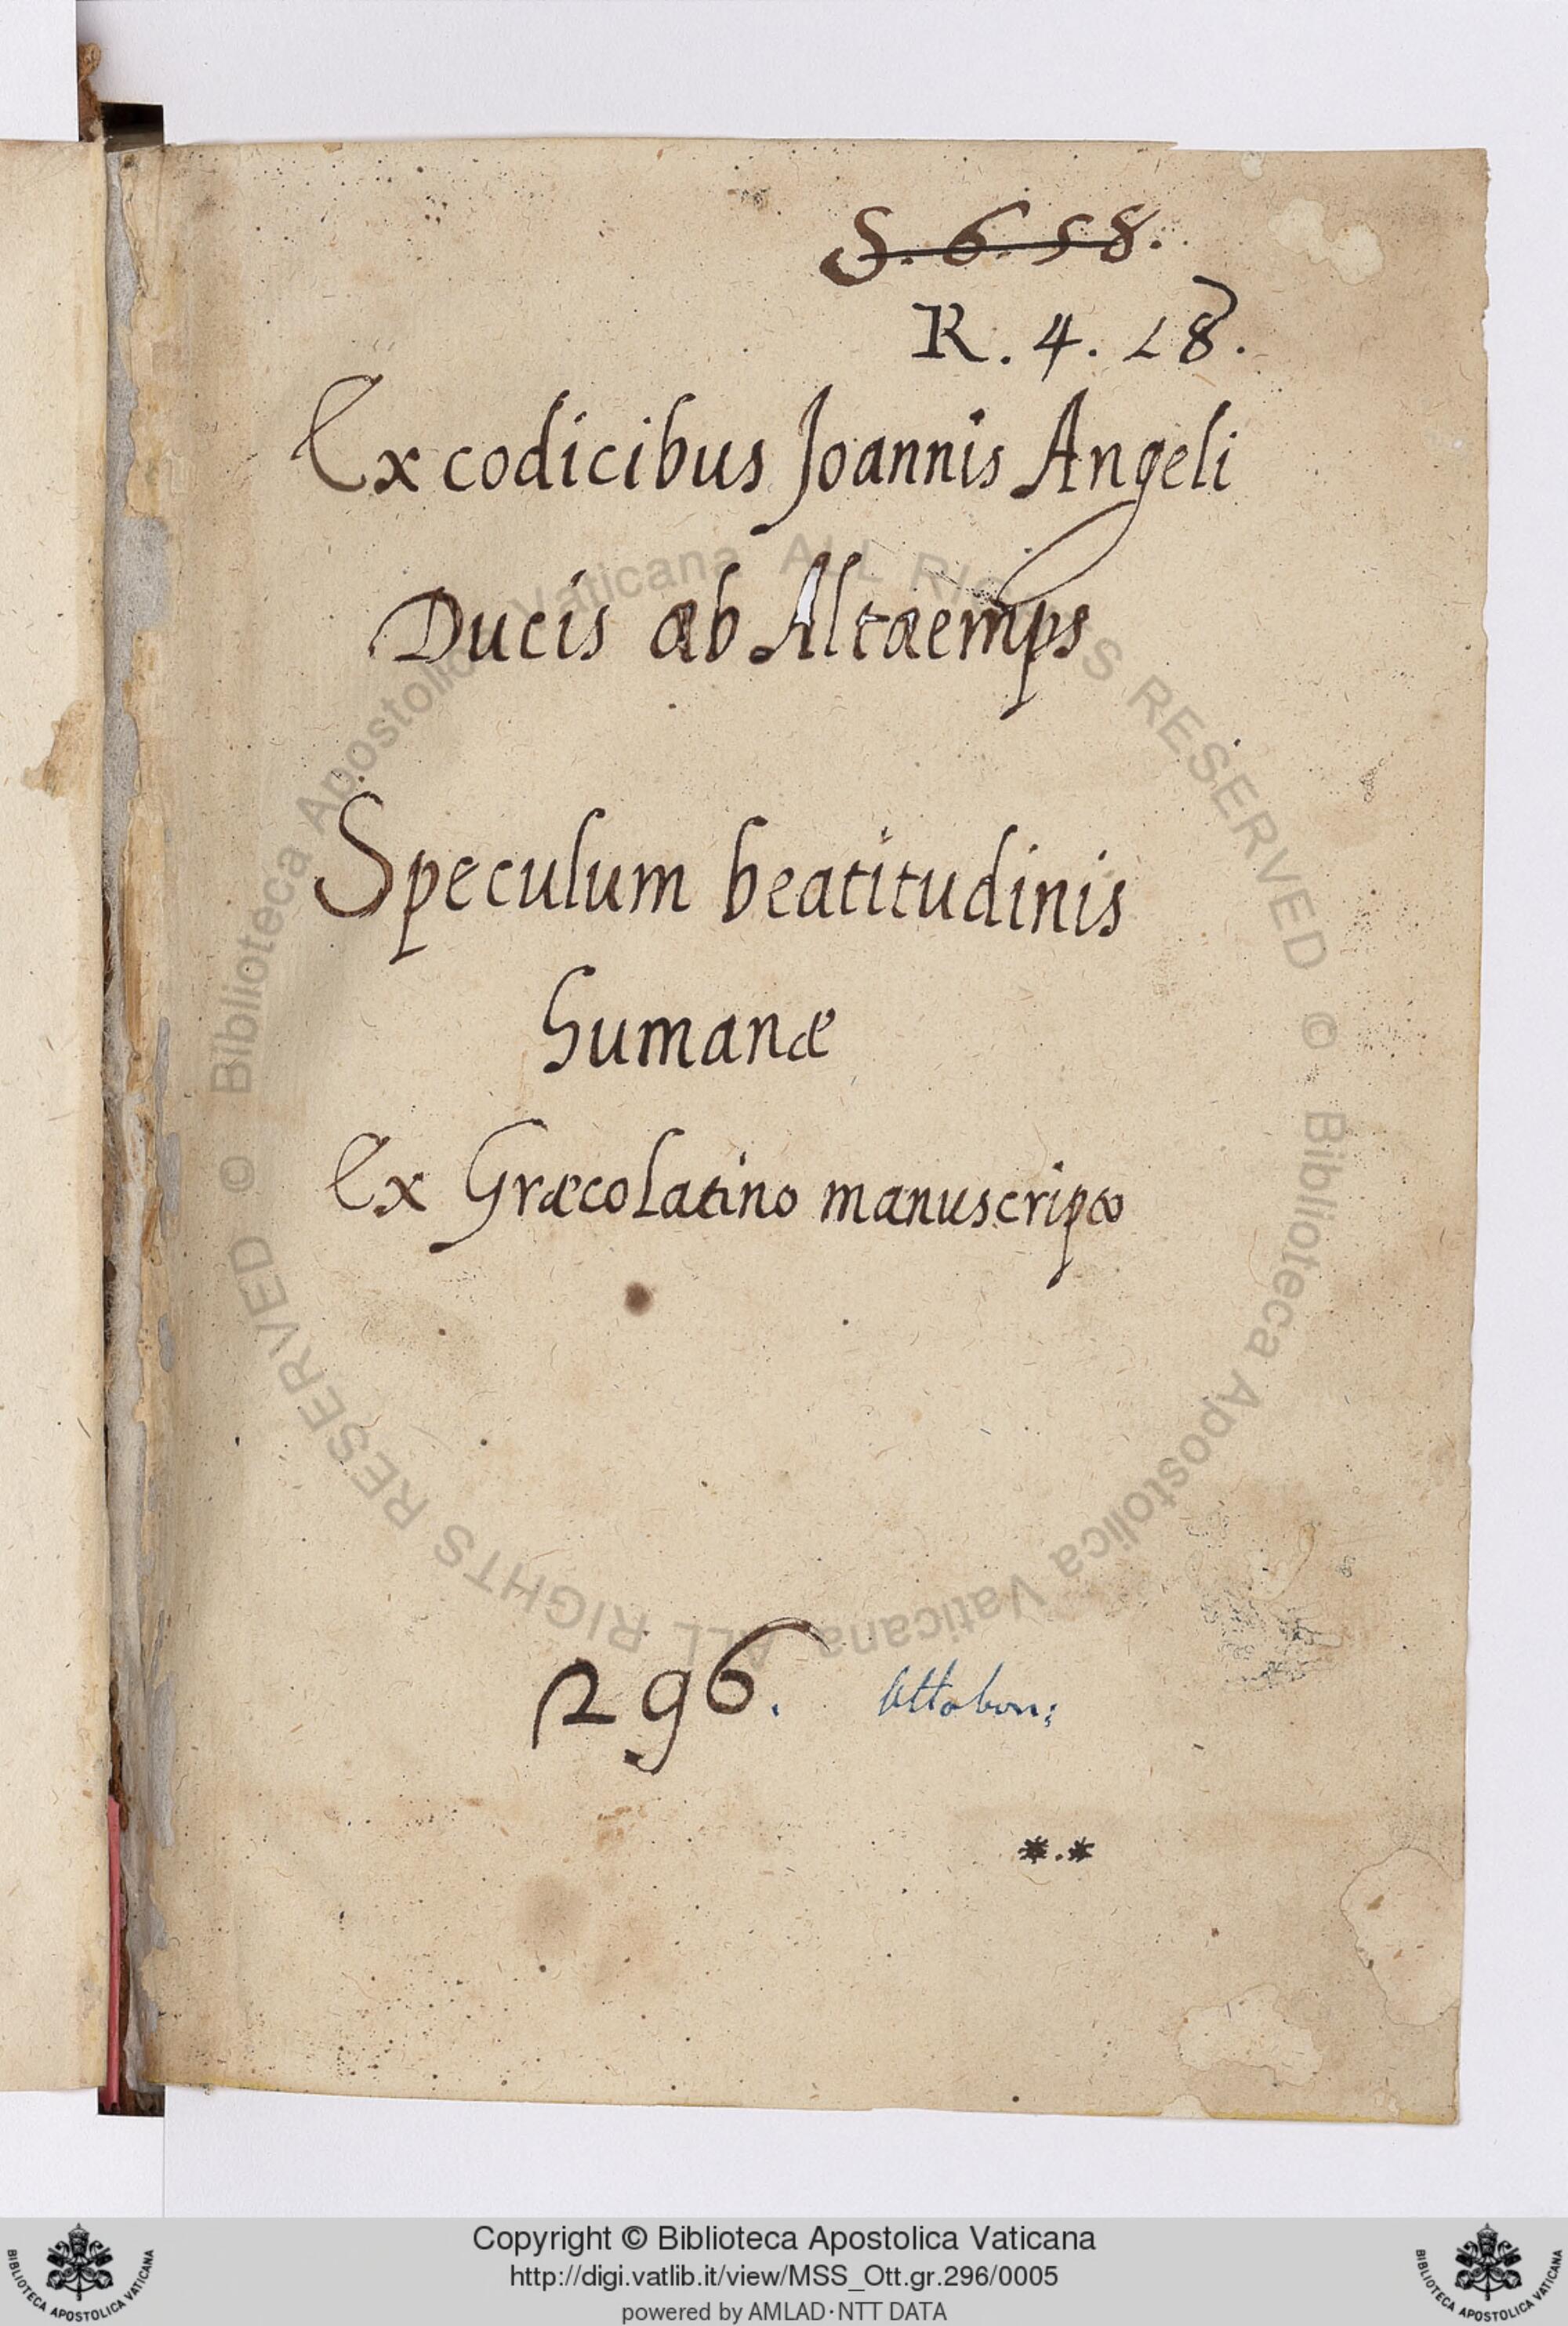 S. 6. 58.
R. 4. 28.
Ex codicibus Joannis Angeli
Ducis ab Altaemps
Speculum beatitudinis
humanæ
Ex Græcolatino manuscripto
296. Ottobon:
*.*
© Biblioteca Apostolica Vaticana ALL RIGHTS RESERVED © Biblioteca Apostolica Vaticana ALL RIGHTS RESERVED
Copyright © Biblioteca Apostolica Vaticana
http://digi.vatlib.it/view/MSS_Ott.gr.296/0005
powered by AMLAD·NTT DATA
BIBLIOTECA APOSTOLICA VATICANA
BIBLIOTECA APOSTOLICA VATICANA